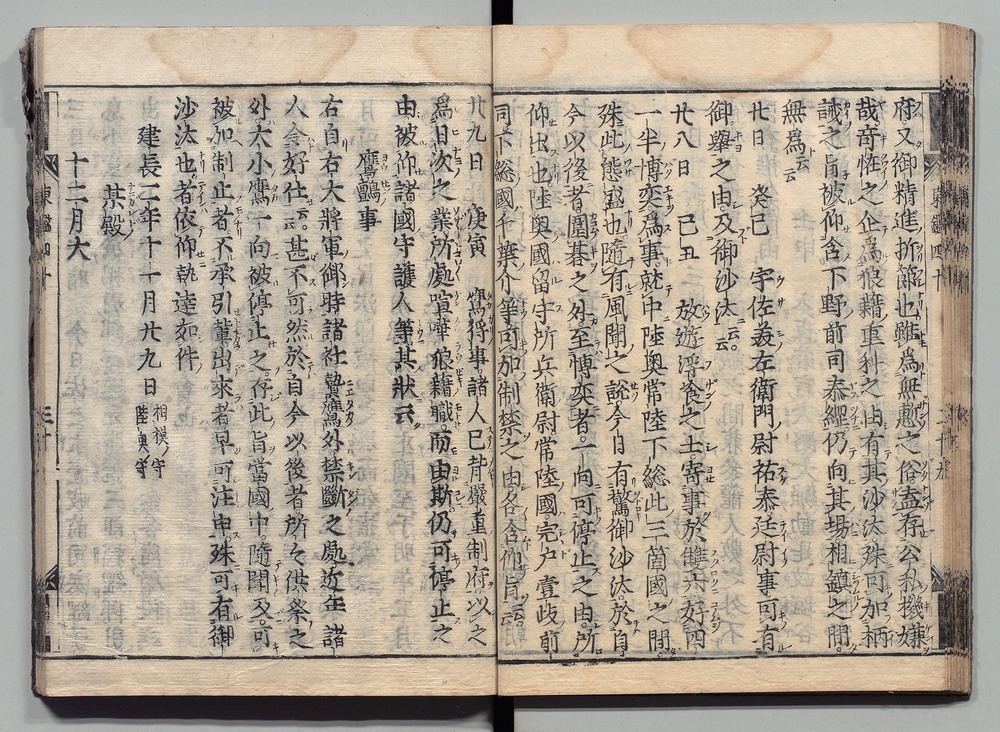 府又御精進折節也雖為無慙之俗盍存公私機嫌
哉奇恠之企為狼藉重科之由有其沙汰殊可加柄
誡之旨被仰含下野前司泰經仍向其場相鎮之間
無為云云
廿日 癸巳 宇佐美左衛門尉祐泰廷尉事可有
御擧之由及御沙汰云云
廿八日 己丑 放遊浮食之士寄事於雙六好四
一半博奕為事就中陸奥常陸下総此三箇國之間
殊此態盛也隨有風聞之說今日有驚御沙汰於自
今以後者圍碁之外至博奕者一向可停止之由所
仰出也陸奥國留守所兵衛尉常陸國宍戸壹歧前
司下総國千葉介等可加制禁之由各含仰旨云云
廿九日 庚寅 鷹狩事諸人已背嚴重制府以之
為日次之業所處喧嘩狼藉職而由斯仍可停止之
由被仰諸國守護人等其狀云
鷹鸇事
右自右大將軍御時諸社贄鷹外禁斷之處近年諸
人令好仕云云甚不可然於自今以後者所々供祭之
外大小鷹一向被停止之存此旨當國中隨聞及可
被加制止者不承引輩出來者早可注申殊可有御
沙汰也者依仰執達如件
建長二年十一月廿九日 相模守
陸奥守
某殿
十二月大
東鑑四十
三十